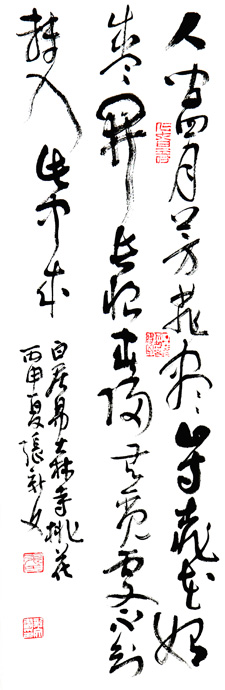 人間四月芳菲盡山寺桃花始
盛開長恨春歸無覓處不知
轉入此中來
白居易大林寺桃花
丙申夏張新